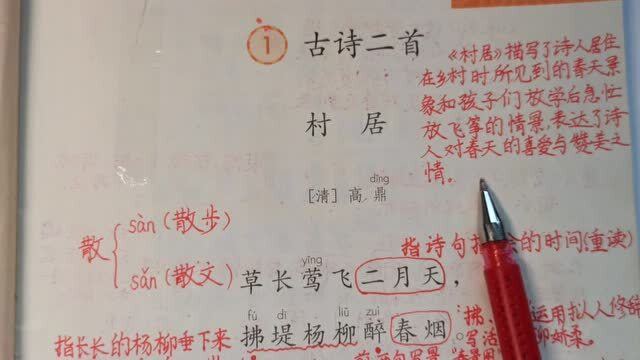 1 古诗二首
《村居》描写了诗人居住
在乡村时所见到的春天景
象和孩子们放学后急忙
放飞筝的情景,表达了诗
人对春天的喜爱与赞美之
情。
村居
dǐng
[清]高鼎
散
sàn(散步)
sǎn(散文)
指诗句 的时间(重读)
yīng
草长莺飞二月天,
fú dī liǔ zuì
拂堤杨柳醉春烟
指长长的杨柳垂下来
拂、 运用拟人修辞
写活 柳娇柔。